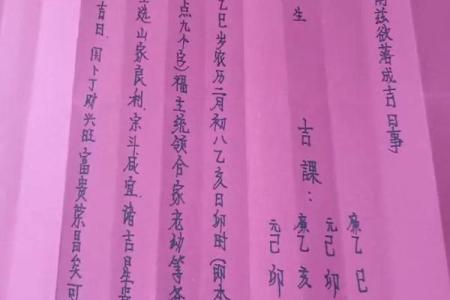 兹欲落成吉日事
生
吉課：
廣乙巳
元己卯
廣乙亥
元己卯
乙巳岁农历二月初八乙亥日卯时(即本
点九个字)福主统领合家老幼等
选山家良利.宗斗咸宜.诸吉星
吉日.国卜丁财兴旺富贵荣昌矣可